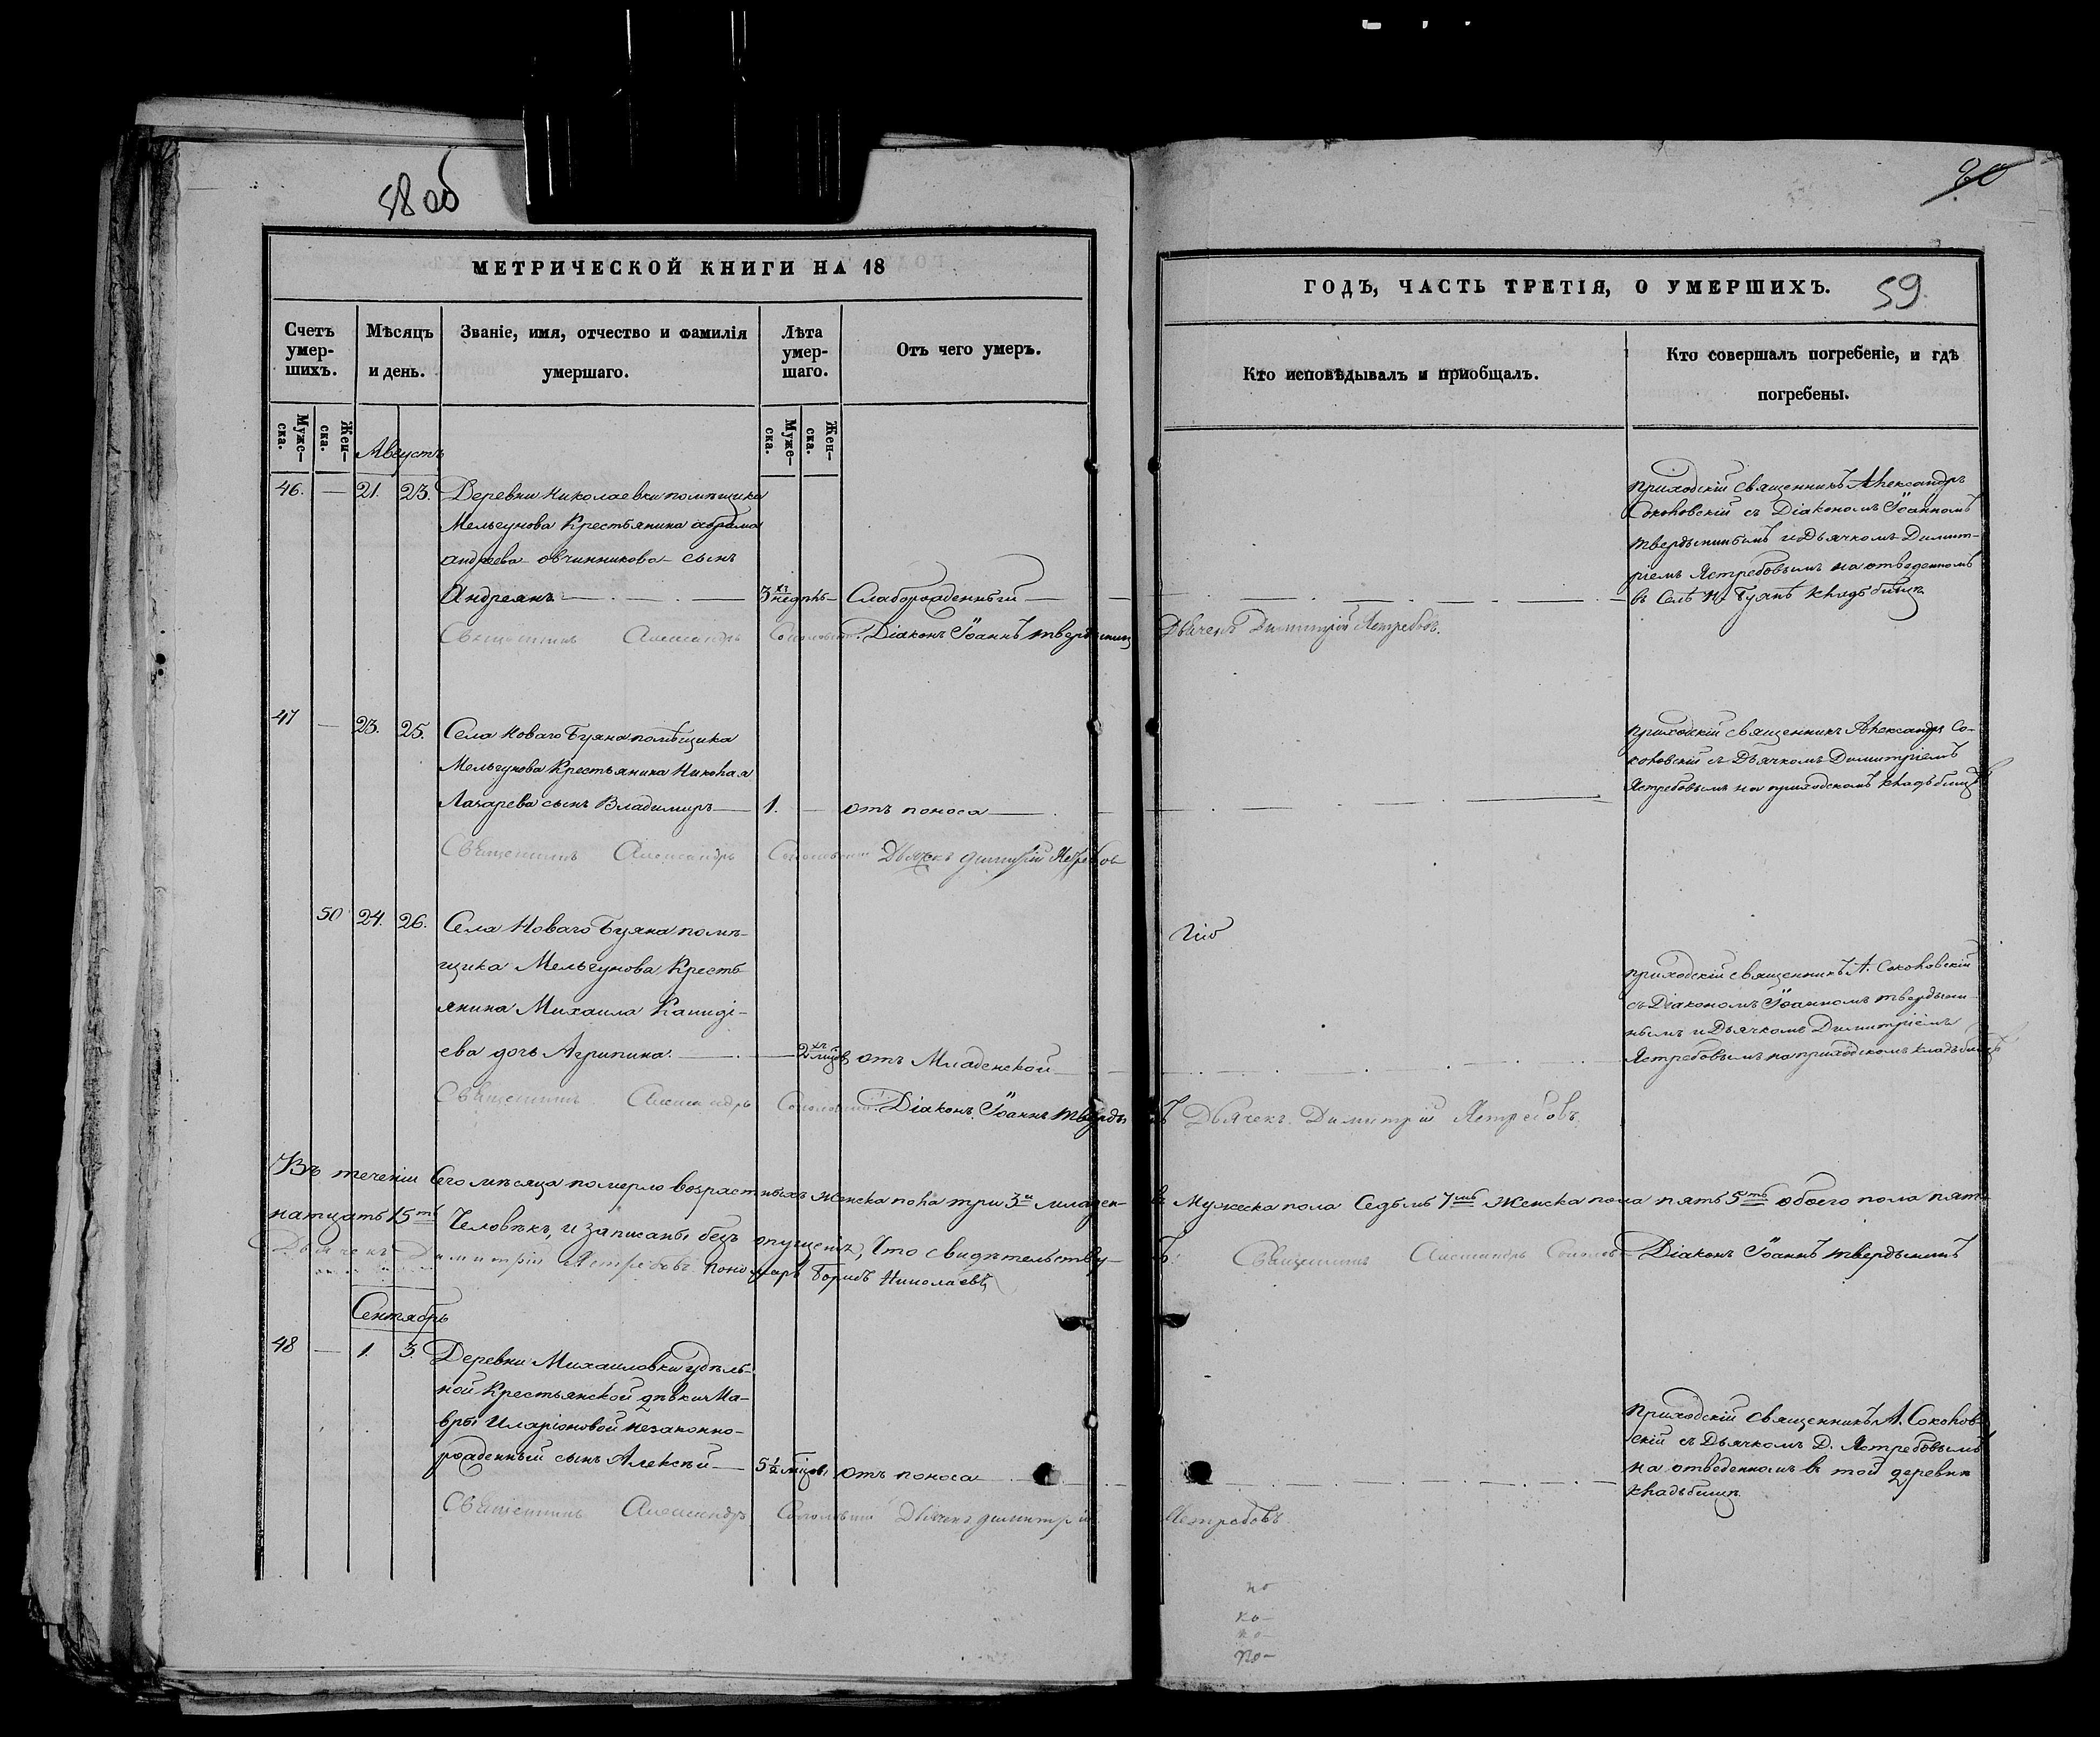 58 об
60
МЕТРИЧЕСКОЙ КНИГИ НА 18
ГОДЪ, ЧАСТЬ ТРЕТІЯ, О УМЕРШИХЪ.
59
Счетъ умер-
шихъ.
Мѣсяцъ
и день.
Званіе, имя, отчество и фамилія
умершаго.
Лѣта
умер-
шаго.
Отъ чего умеръ.
Кто исповѣдывалъ и пріобщалъ.
Кто совершалъ погребеніе, и гдѣ
погребены.
Муже-
ска.
Жен-
ска.
Муже-
ска.
Жен-
ска.
Августъ
46. — 21. 23. Деревни Николаевки помѣщика
Мельгунова Крестьянина Абрама
Андреева Овчинникова сынъ
Андреянъ — 3хъ недѣль — Слаборожденный
Приходскій Священникъ Александръ
Соколовскій съ Діакономъ Іоанномъ
Твердышинымъ и Дьячкомъ Димит-
ріемъ Ястребовымъ на отведенномъ
въ Селѣ Н. Буянѣ кладбищѣ
Священникъ Александръ Соколовскій. Діаконъ Іоаннъ Твердышинъ Дьячекъ Димитрій Ястребовъ.
47 — 23. 25. Села Новаго Буяна помѣщика
Мельгунова Крестьянина Николая
Лазарева сынъ Владимиръ — 1. — отъ поноса
Приходскій Священникъ Александръ Со-
коловскій съ Дьячкомъ Димитріемъ
Ястребовымъ на приходскомъ кладбищѣ
Священникъ Александръ Соколовскій Дьячекъ Димитрій Ястребовъ
50 24. 26. Села Новаго Буяна помѣ-
щика Мельгунова Кресть-
янина Михаила
ева дочь Агрипина. — 2хъ мѣцовъ отъ Младенской
Приходскій Священникъ А. Соколовскій
съ Діакономъ Іоанномъ Твердыши-
нымъ и Дьячкомъ Димитріемъ
Ястребовымъ на приходскомъ кладбищѣ
Священникъ Александръ Соколовскій. Діаконъ Іоаннъ Тверды Дьячекъ Димитрій Ястребовъ
Въ теченіи Сего мѣсяца померло возрастныхъ женска пола три 3и младен- Мужеска пола Седьмь 7мь Женска пола пять 5ть обоего пола пят-
натцать 15ть Человѣкъ, и записаны безъ опущенія, Что свидѣтельству- Священникъ Александръ Соколов Діаконъ Іоаннъ Твердышинъ
Дьячекъ Димитрій Ястребовъ Пономарь Борисъ Николаевъ
Сентябрь
48 — 1. 3. Деревни Михаиловки удѣль-
ной Крестьянской дѣвки Ма-
вры Иларіоновой незаконно-
рожденный сынъ Алексѣй — 5½ мѣцовъ Отъ поноса
Приходскій Священникъ А. Соколов-
скій съ Дьячкомъ Д. Ястребовымъ
на отведенномъ въ той деревни
кладбищѣ
Священникъ Александръ Соколовскій Дьячекъ Димитрій Ястребовъ.
по
ко-
ко-
по-